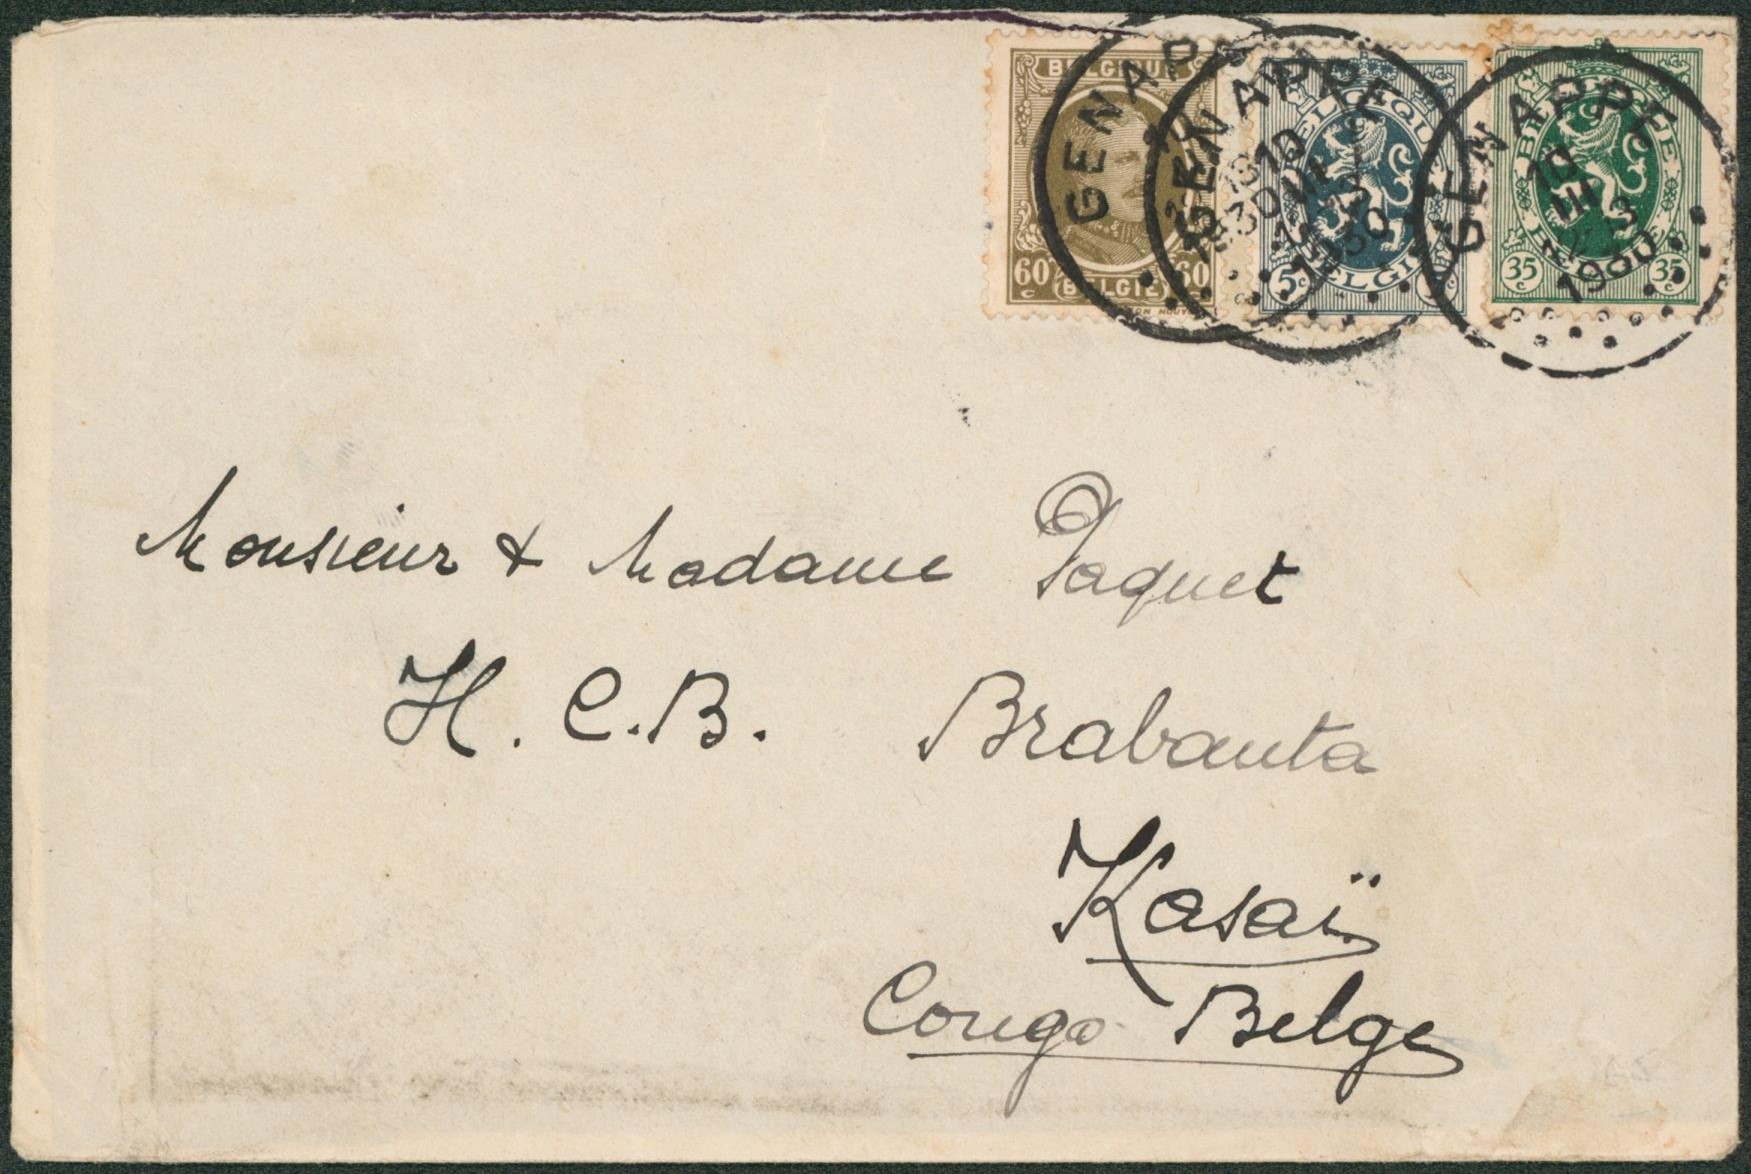 BELGIQUE
60 c 60
BELGIË
BELGIQUE
5 c
BELGIË
BELGIQUE
35 c 35 c
BELGIË
GENAPPE
1930
GENAPPE
10
III
1930
GENAPPE
10
III
13
1930
Monsieur & Madame Paquet
H. C. B. Brabanta
Kasaï
Congo Belge